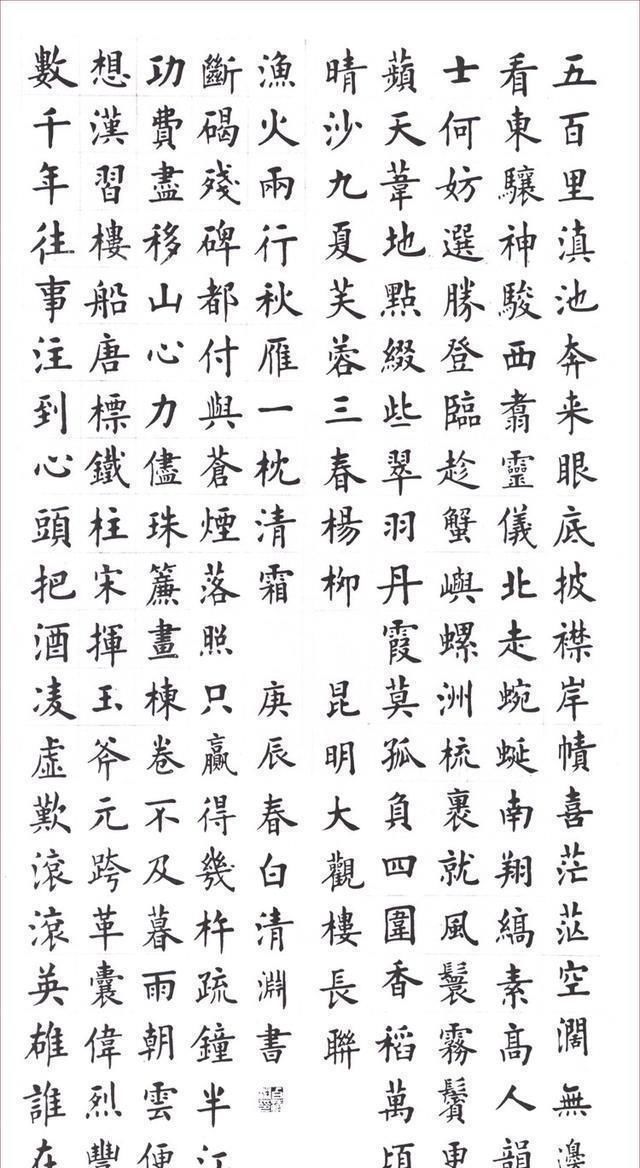 五百里滇池奔来眼底披襟岸幘喜茫茫空闊無邊
看東驤神駿西翥靈儀北走蜿蜒南翔縞素高人韻
士何妨選勝登臨趁蟹嶼螺洲梳裹就風鬟霧鬢更
蘋天葦地點綴些翠羽丹霞莫孤負四圍香稻萬頃
晴沙九夏芙蓉三春楊柳 昆明大觀樓長聯
數千年往事注到心頭把酒凌虛歎滾滾英雄誰在
想漢習樓船唐標鐵柱宋揮玉斧元跨革囊偉烈豐
功費盡移山心力儘珠簾畫棟卷不及暮雨朝雲便
斷碣殘碑都付與蒼煙落照只贏得幾杵疏鐘半江
漁火兩行秋雁一枕清霜 庚辰春白清淵書